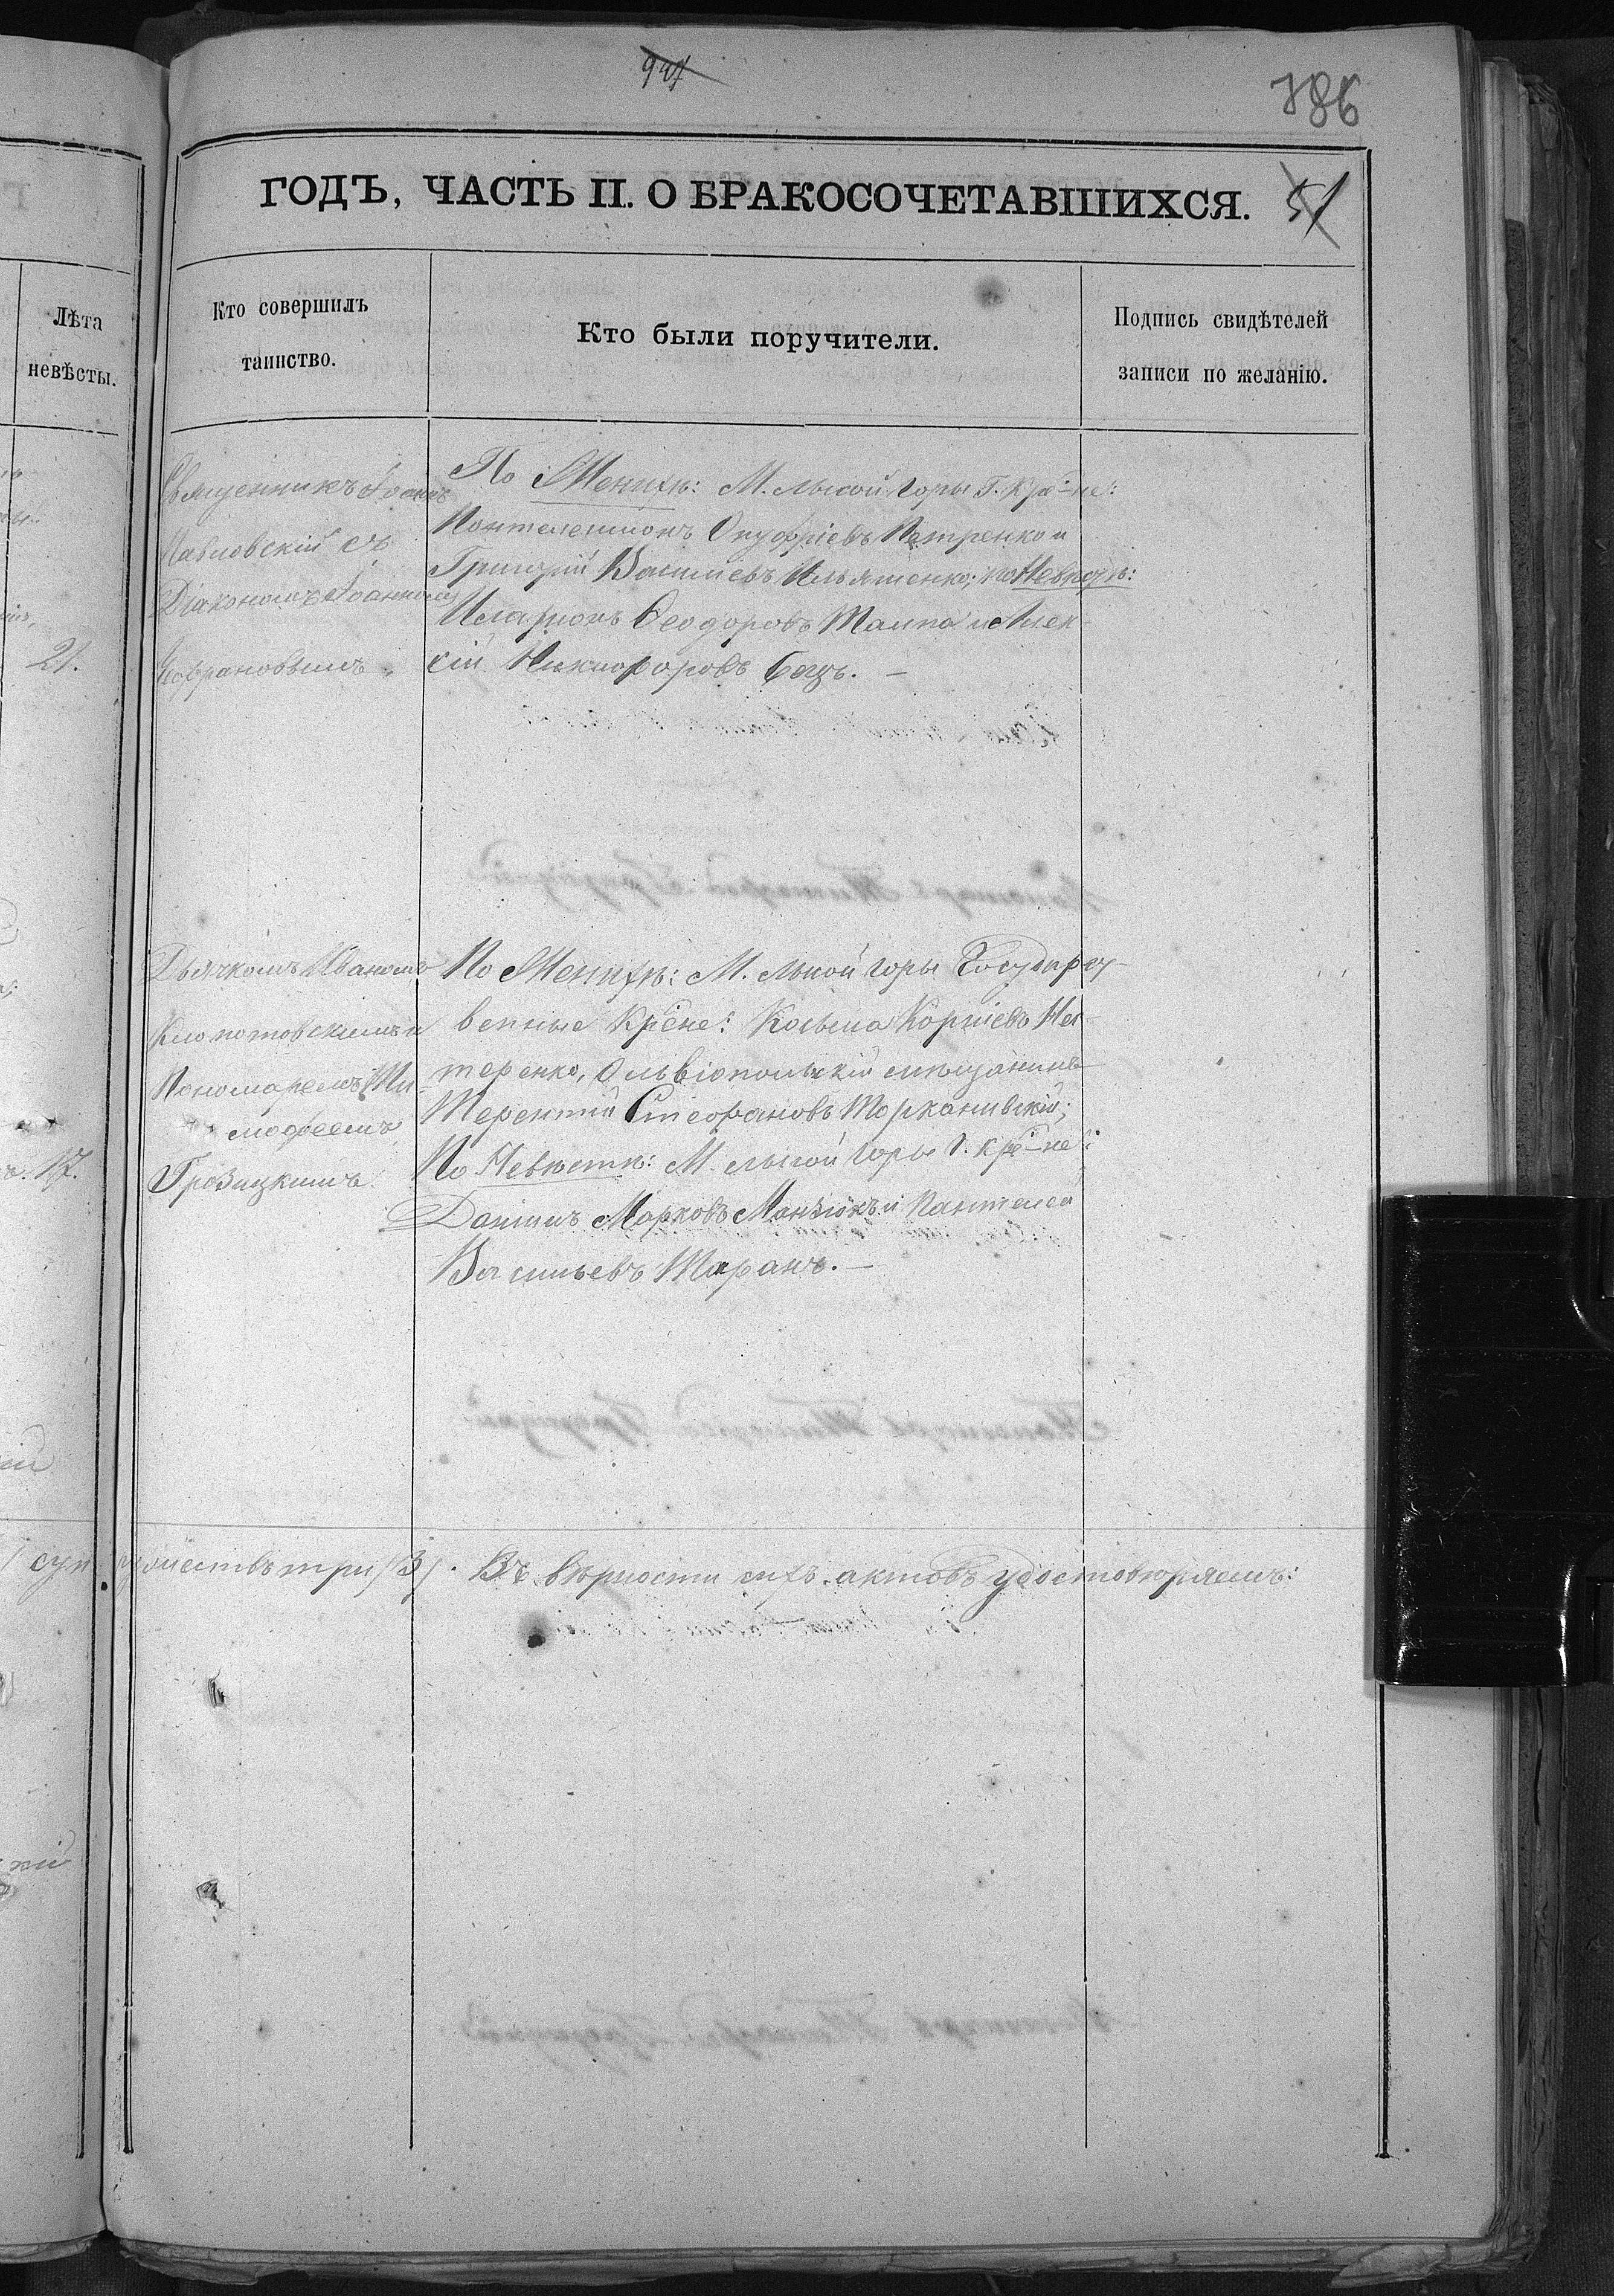 786
ГОДЪ, ЧАСТЬ II. О БРАКОСОЧЕТАВШИХСЯ. 51
Лѣта
невѣсты.
Кто совершилъ
таинство.
Кто были поручители.
Подпись свидѣтелей
записи по желанію.
21.
Священникъ Іоаннъ
Павловскій съ
Діакономъ Іоанномъ
По Женихѣ: М. Лысой Горы Г. Кре-не:
Пантелеимонъ Онуфріевъ Петренко и
Григорій Василіевъ Ильяшенко; по Невѣстѣ:
Иларіонъ Ѳеодоровъ и Алек-
сій Никифоровъ
17.
Дьячкомъ Иваномъ
Клопотовскимъ и
Пономаремъ Ти-
моѳеемъ
Грозицкимъ.
По Женихѣ: М. Лысой Горы Государст-
венные Кре-не: Косьма Корніевъ Нес-
теренко, Ольвіопольскій мѣщанинъ
Терентій Стефановъ
По Невѣстѣ: М. Лысой Горы Г. Кре-не:
Даніилъ Марковъ и Пантелей
Васильевъ Таранъ. —
суп
ружествъ три /3/. Въ вѣрности сихъ актовъ удостовѣряемъ: